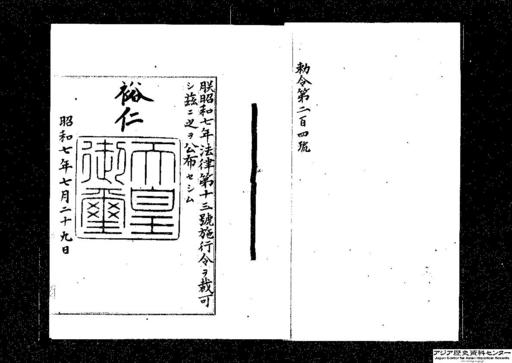 勅令第二百四號
朕昭和七年法律第十三號施行令ヲ裁可
シ茲ニ之ヲ公布セシム
裕仁
天皇御璽
昭和七年七月二十九日
アジア歴史資料センター
Japan Center for Asian Historical Records